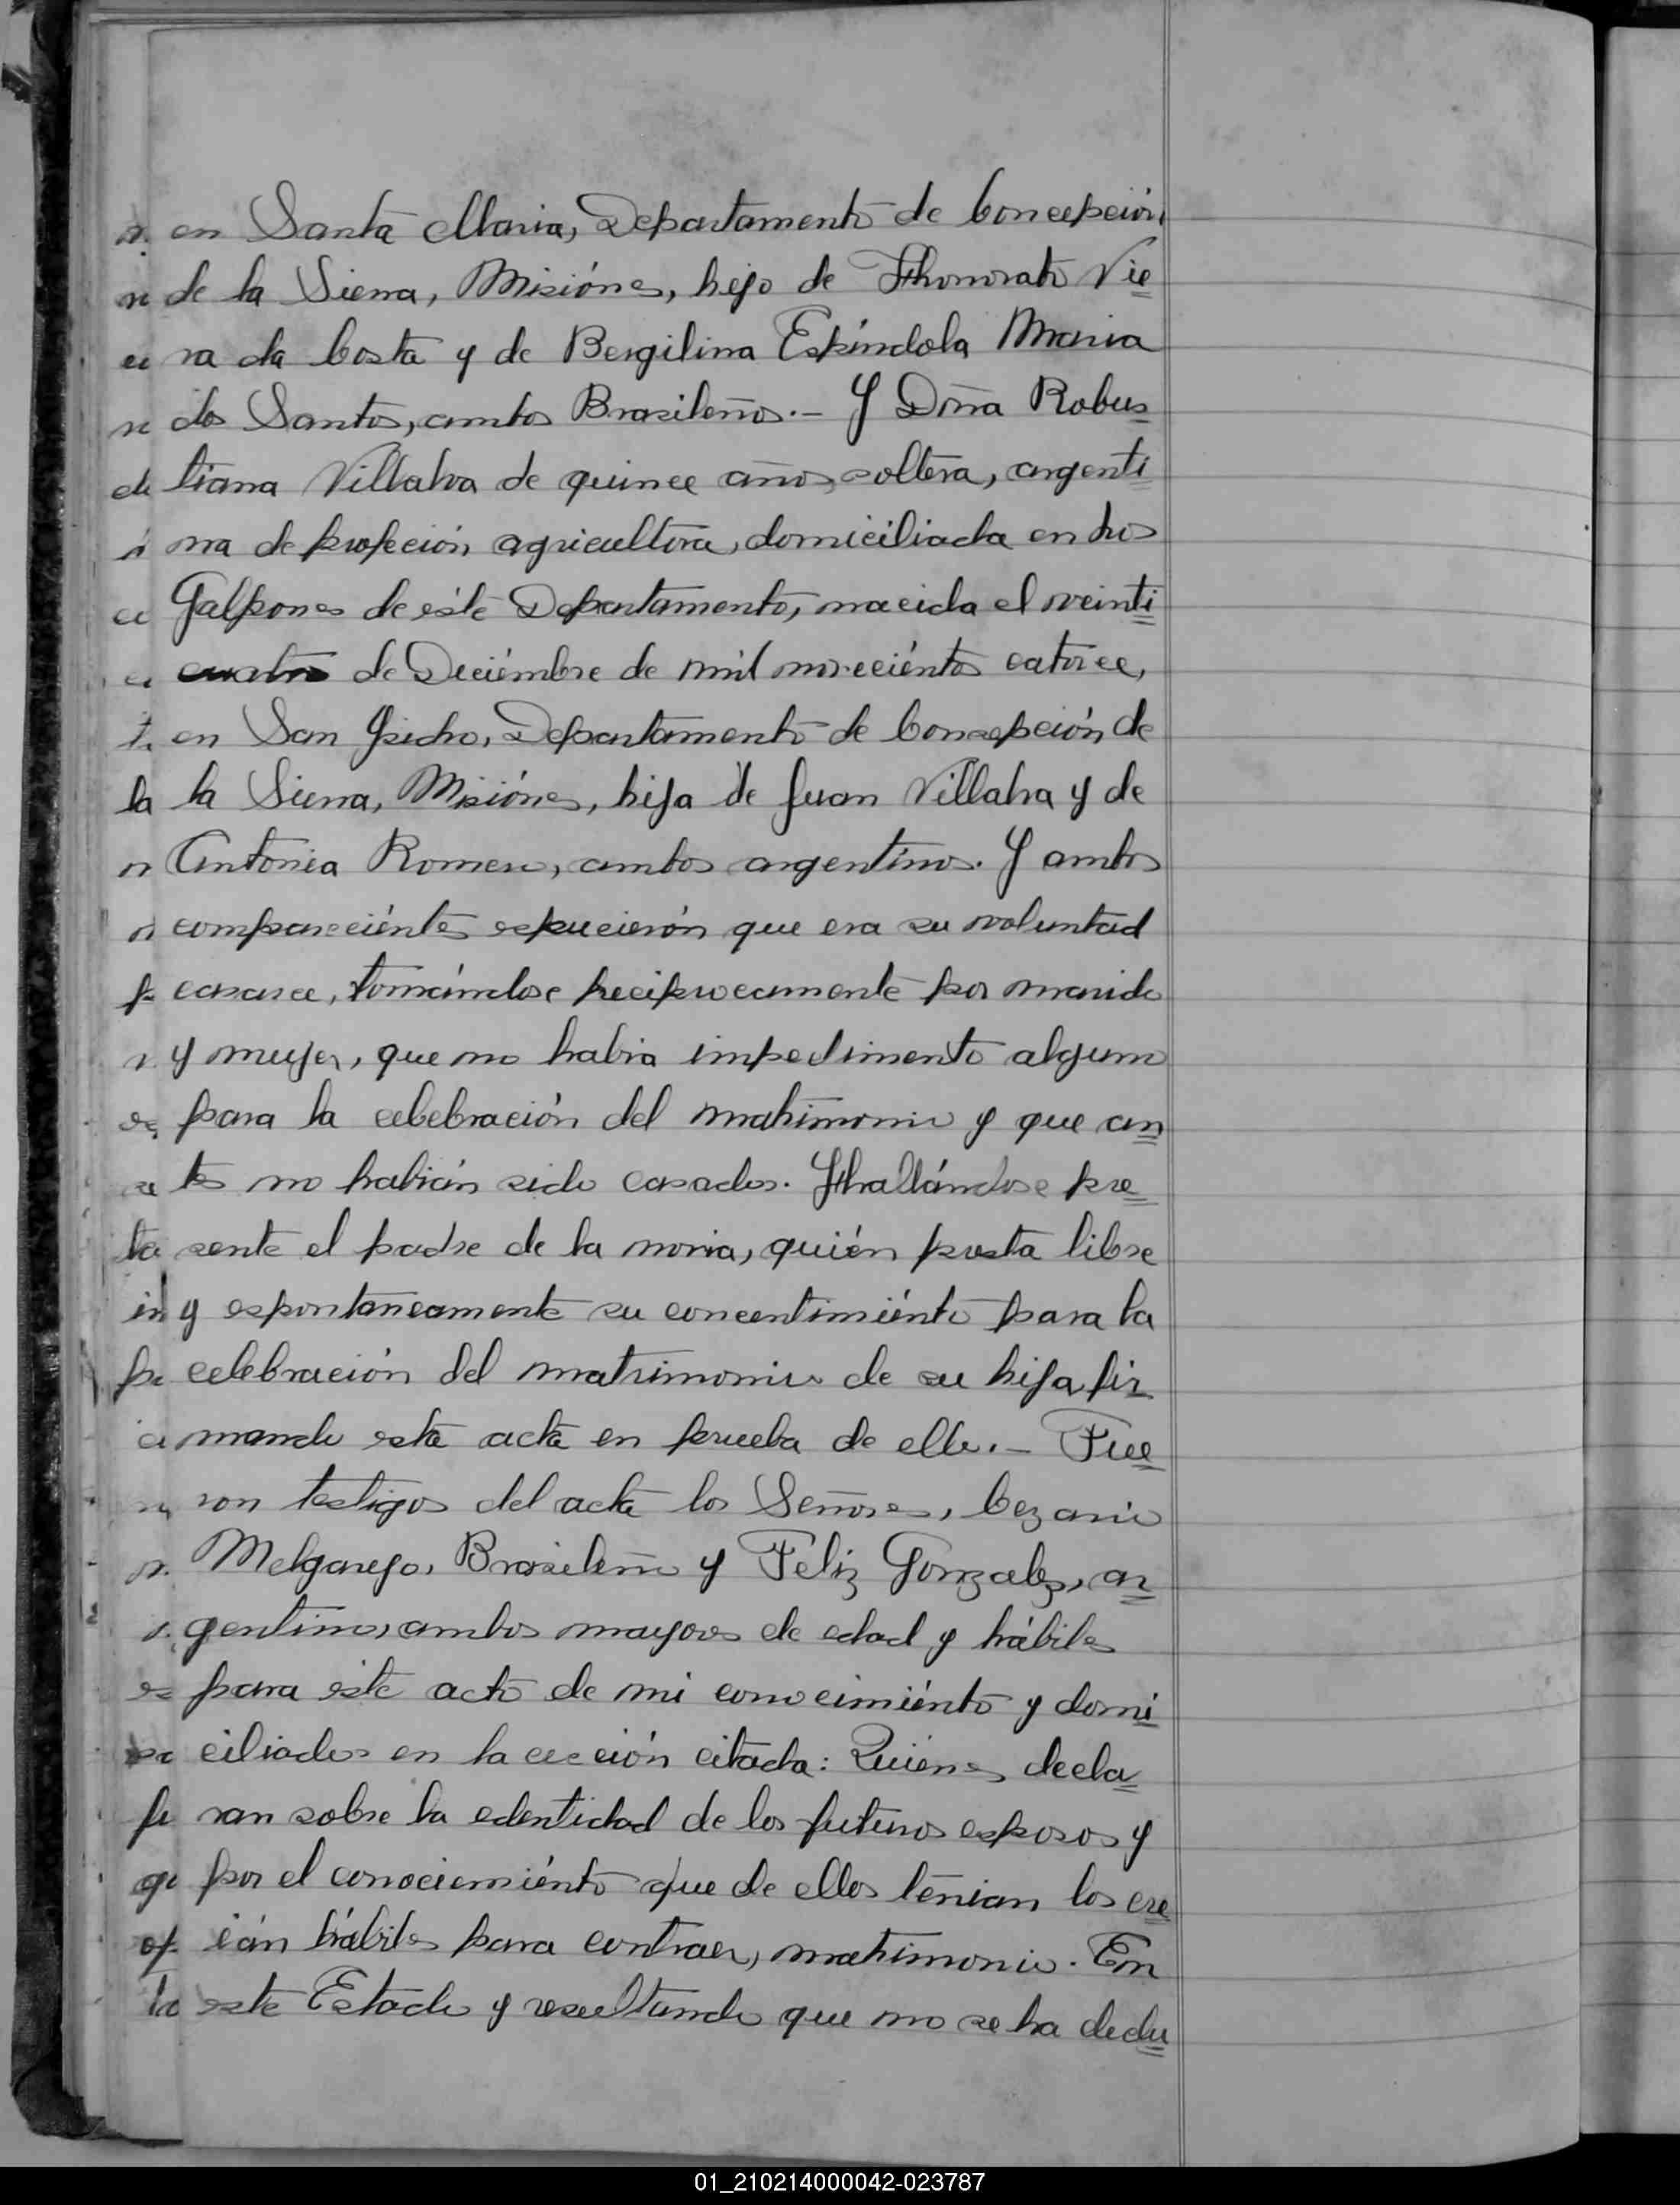 en Santa Maria, Departamento de Concepción
de la Sierra, Misiónes, hijo de Hhonorato Vie
ra da Costa y de Bergilina Espíndola Maria
dos Santos, ambos Brasileños.- Y Doña Robus
tiana Villalva de quince años, soltera, argenti
na de profeción agricultora, domiciliada en Los
Galpones de éste Departamento, nacida el veinti
cuatro de Deciémbre de mil noveciéntos catorce,
en San Ysidro, Departamento de Concepción de
la Sierra, Misiónes, hija de Juan Villalva y de
Antonia Romero, ambos argentinos. Y ambos
compareciéntes espucierón que era su voluntad
casarce, tomándose reciprocamente por marido
y mujer, que no habia impedimento alguno
para la celebración del matrimonio y que an
tes no habián sido casados. Hhallándose pre
sente el padre de la novia, quién presta libre
y espontaneamente su concentimiénto para la
celebración del matrimonio de su hija fir
mando esta acta en prueba de ello.- Fue
ron testigos del acta los Señores, Cezario
Melgarejo, Brasileño y Feliz Gonzalez, ar
gentino, ambos mayores de edad y hábiles
para éste acto de mi conocimiénto y domi
ciliados en la cección citada: Quiénes decla
ran sobre la edentidad de los futuros esposos y
por el conociemiénto que de ellos tenian los cre
ián hábiles para contraer, matrimonio. En
este Estado y resultando que no se ha dedu
01_210214000042-023787